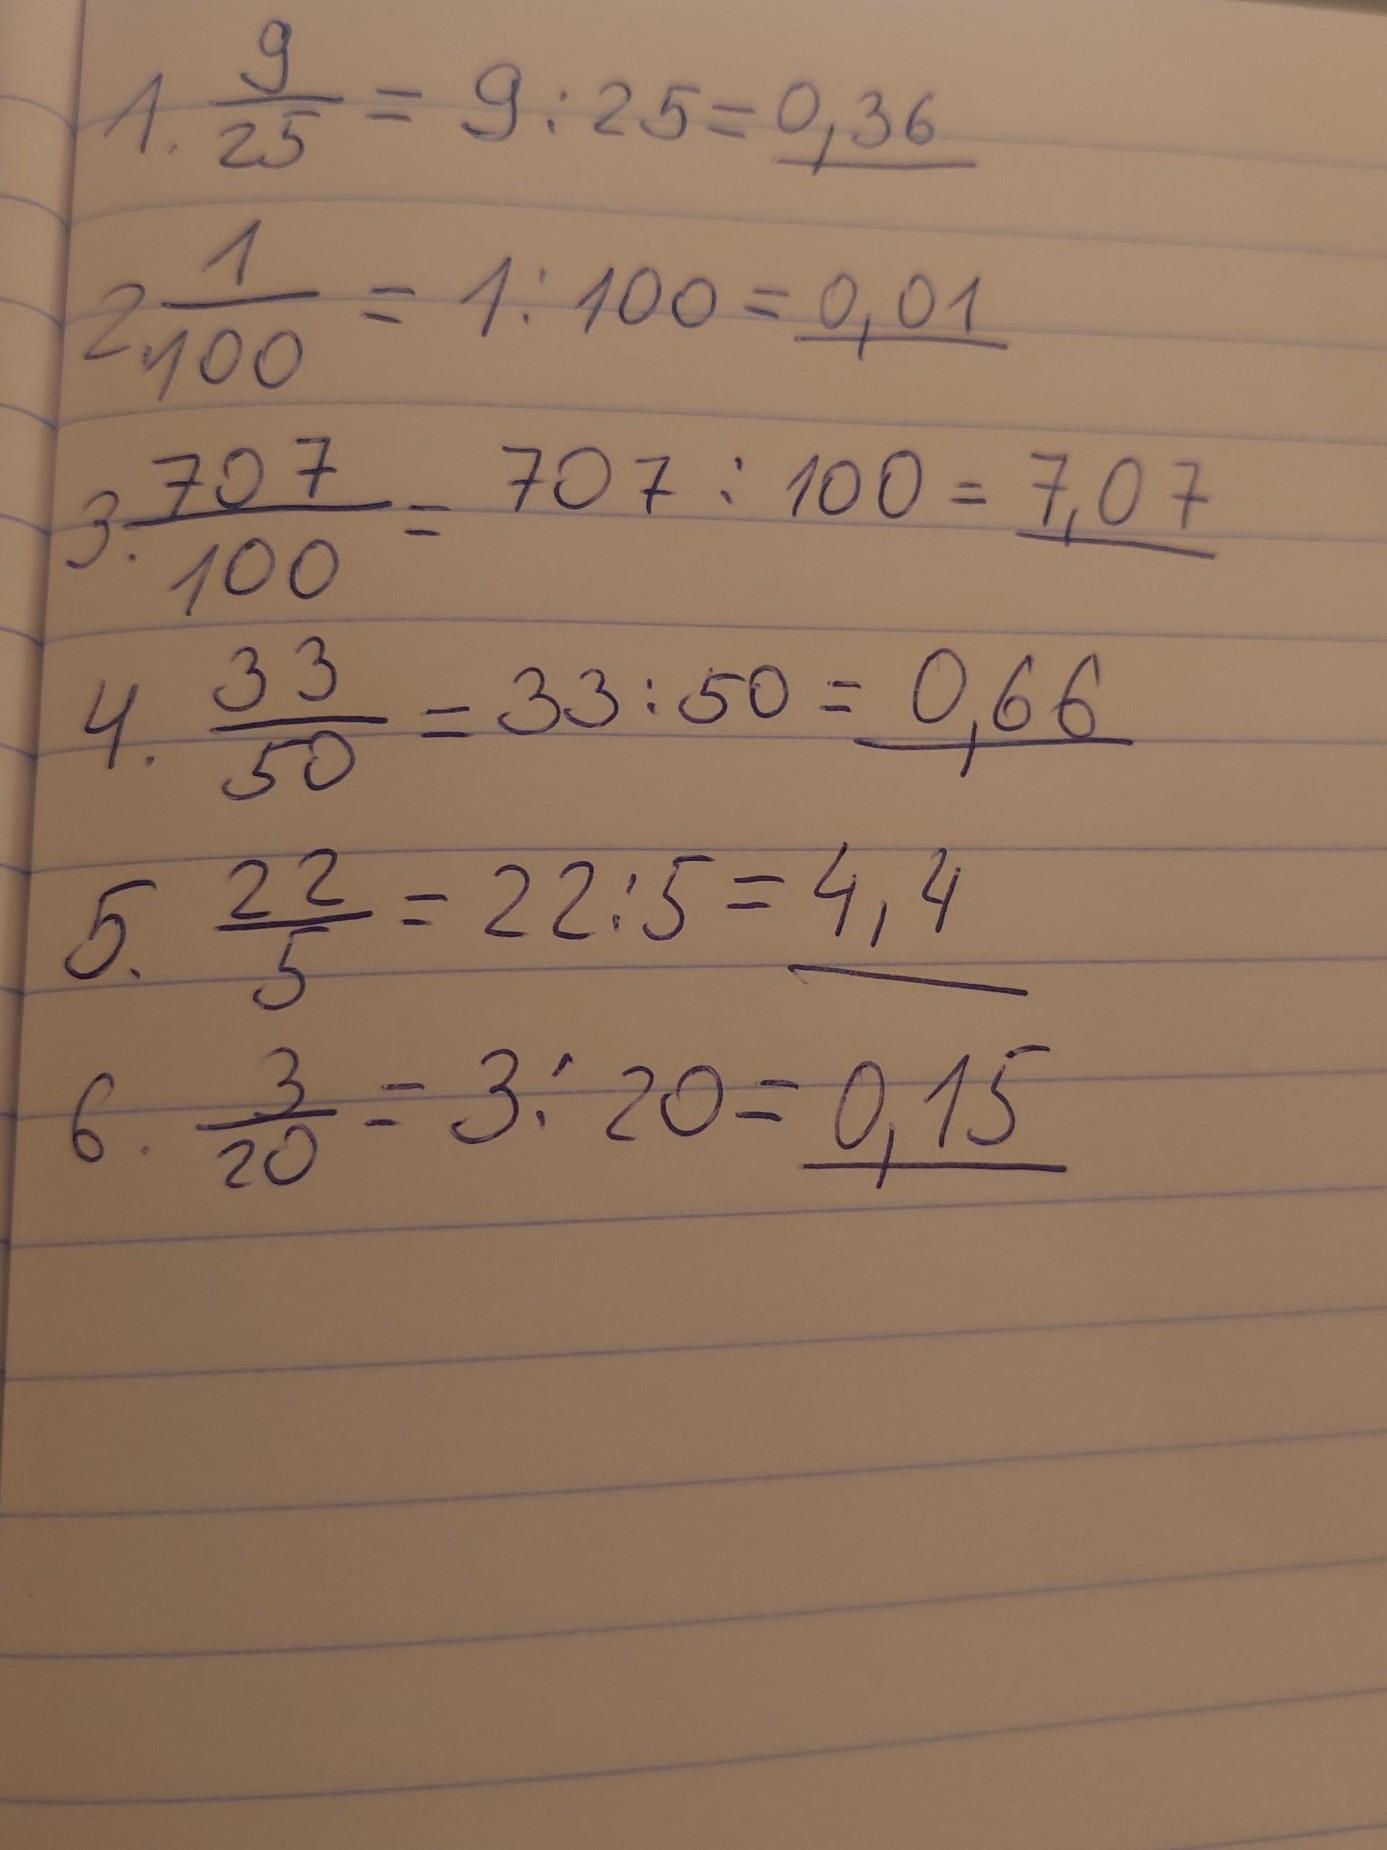 1. 9/25 = 9 : 25 = 0,36
2. 1/100 = 1 : 100 = 0,01
3. 707/100 = 707 : 100 = 7,07
4. 33/50 = 33 : 50 = 0,66
5. 22/5 = 22 : 5 = 4,4
6. 3/20 = 3 : 20 = 0,15